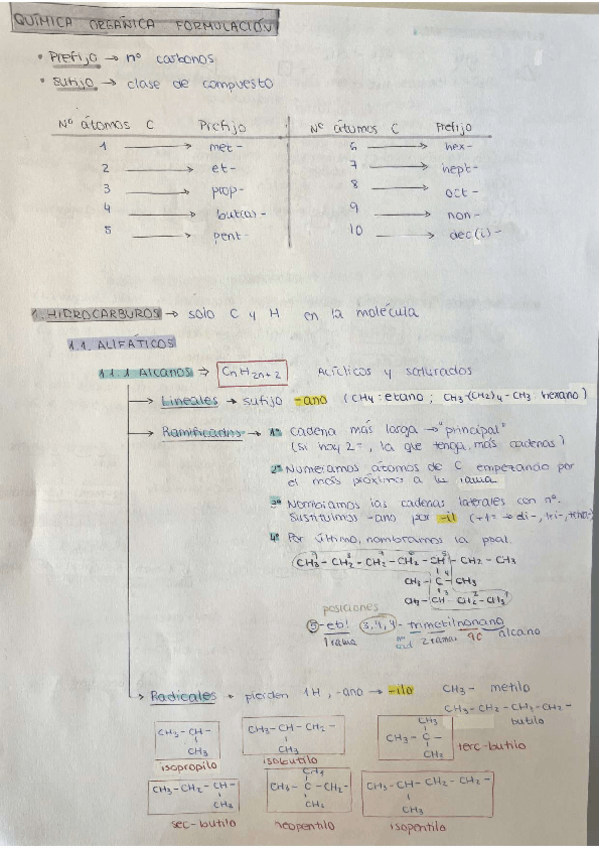 QUÍMICA ORGÁNICA FORMULACIÓN
• Prefijo → nº carbonos
• Sufijo → clase de compuesto
Nº átomos C Prefijo Nº átomos C Prefijo
1 → met- 6 → hex-
2 → et- 7 → hept-
3 → prop- 8 → oct-
4 → but(a)- 9 → non-
5 → pent- 10 → dec(i)-
1. HIDROCARBUROS → sólo C y H en la molécula
1.1. ALIFÁTICOS
1.1.1 Alcanos → CnH2n+2 Acíclicos y saturados
→ Lineales → sufijo -ano (CH4: etano; CH3-(CH2)4-CH3: hexano)
→ Ramificados → 1º cadena más larga → "principal"
(si hay 2 =, la que tenga más cadenas)
2º Numeramos átomos de C empezando por
el más próximo a la rama
3º Nombramos las cadenas laterales con nº.
Sustituimos -ano por -il (+1 = → di-, tri-,
4º Por último, nombramos la ppal.
CH3-CH2-CH2-CH2-CH-CH2-CH3
CH3-C-CH3
CH3-CH-CH2-CH3
posiciones
5-etil 3,4,4-trimetilnonano
1 rama 2 rama 9C alcano
→ Radicales → pierden 1H, -ano → -ilo CH3- metilo
CH3-CH2-CH2-CH2-
butilo
CH3-CH- CH3-CH-CH2- CH3
CH3-C-
CH3 CH3 CH3 terc-butilo
isopropilo isobutilo
CH3-CH2-CH- CH3 CH3-CH-CH2-CH2-
CH3-C-CH2-
CH3 CH3 CH3
sec-butilo neopentilo isopentilo